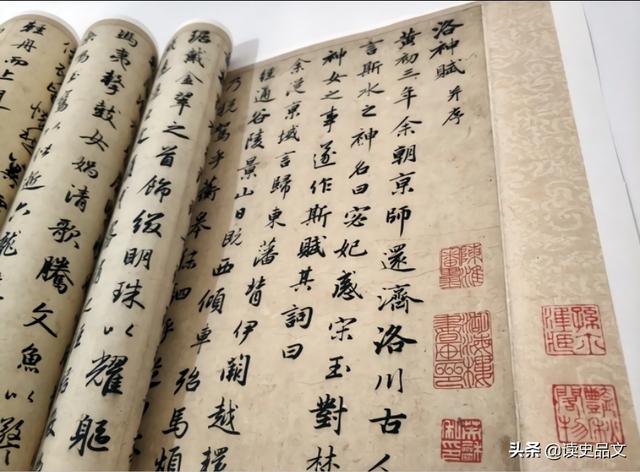 洛神賦 并序
黄初三年余朝京師還濟洛川古人
言斯水之神名曰宓妃感宋玉對楚
神女之事遂作斯賦其詞曰
余從京域言歸東藩背伊闕越轘
經通谷陵景山日既西傾車殆馬煩
乃税駕乎蘅皋秣駟乎
琚戴金翠之首飾綴明珠以耀軀
馮夷擊鼓女媧清歌騰文魚以警
六龍
头条 @读史品文